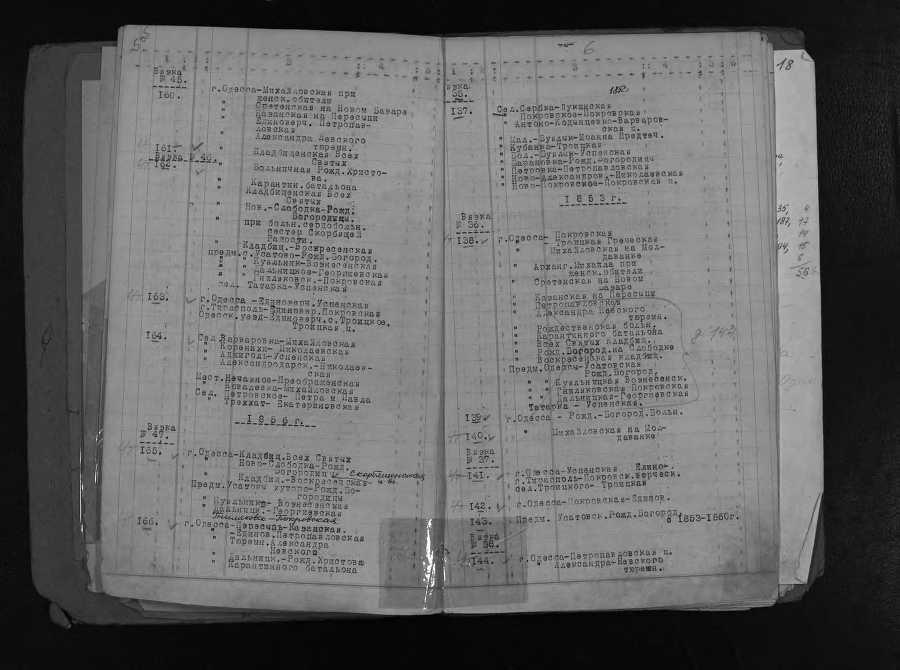 Вязка
№ 45.
160.
г.Одесса-Михайловская при
женск.обители
" Сретенская на Новом Базаре
" Казанская на Пересыпи
" Единоверч. Петропав-
ловская
" Александра Невского
тюремн.
161.
" Кладбищенская Всех
Святых
Вязка № 46.
162.
" Больничная Рожд.Христо-
ва.
" Карантин.батальона
" Кладбищенская Всех
Святых
" Нов.-Слободка-Рожд.
Богородицы.
" при больн.сердобольн.
сестер Скорбящей
Радости.
" Кладбищ.-Воскресенская
предм.с.Усатово-Рожд.Богород.
" " Куяльник-Вознесенская
" " Дальницкое-Георгиевская
" " Гниляковск.-Покровская
сел. Татарка-Успенская
163.
г.Одесса -Единоверч.Успенская
г.Тирасполь-Единовер.Покровская
Одесск.уезд-Единоверч.с.Троицкое,
Троицкая ц.
164.
Сел.Варваровка-Михайловская
" Коренихи- Николаевская
" Аджиголь-Успенская
" Александродарск.-Николаев-
ская
Мест.Нечаянное-Преображенская
" Ковалевка-Михайловская
Сел. Петровское- Петра и Павла
" Треххат- Екатериновская
1856г.
Вязка
№ 47.
165.
г.Одесса-Кладбищ.Всех Святых
" Ново-Слободка-Рожд.
Богородицы и Скорбященская
" Кладбищ.-Воскресенская ц.
Предм.Усатовы хутора-Рожд.Бо-
городицы
" Куяльник- Вознесенская
" Дальницк.-Георгиевская
Гниляково-Покровская
166.
г.Одесса-Пересыпь-Казанская.
" -Единов.Петропавловская
" Тюремн.Александра
Невского
" Дальницк.-Рожд.Христова
" Карантинного батальона
6
Вязка
35.
1852
137.
Сел.Сербка-Лукинская
" Покровское-Покровская
" Антоно-Кодинцево-Варваров-
ская ц.
" Мал.-Буялык-Иоанна Предтеч.
" Кубанка-Троицкая
" Бол.-Буялык-Успенская
" Барановка-Рожд.Богородицы
" Петровка-Петропавловская
" Ново-Александров.-Николаевская
" Ново-Покровское-Покровская ц.
1853г.
Вязка
№ 36.
138.
г.Одесса- Покровская
" Троицкая Греческая
" Михайловская на Мол-
даванке
" Арханг.Михаила при
женск.обители
" Сретенская на Новом
Базаре
" Казанская на Пересыпи
" Петропавловская
" Александра Невского
тюремн.
" Рождественская больн.
" Карантинного батальона
" Всех Святых кладбищ.
" Рожд.Богород.на Слободке
" Воскресенская кладбищ.
Предм.Одессы-Усатовская
Рожд.Богород.
" " Куяльницкая Вознесенск.
" " Гниляковская Покровская
" " Дальницкая-Георгиевская
" Татарка - Успенская.
139.
г.Одесса - Рожд.-Богород.Больн.
140.
" Михайловская на Мол-
даванке
Вязка
№ 37.
141.
г.Одесса-Успенская Едино-
г.Тирасполь-Покровск.верческ.
сел.Троицкого- Троицкая
142.
г.Одесса-Покровская-Единов.
143.
Предм. Усатовск.Рожд.Богород.
с 1853-1860г.
Вязка
№ 38.
144.
г.Одесса-Петропавловская ц.
" Александра-Невского
тюремн.
18